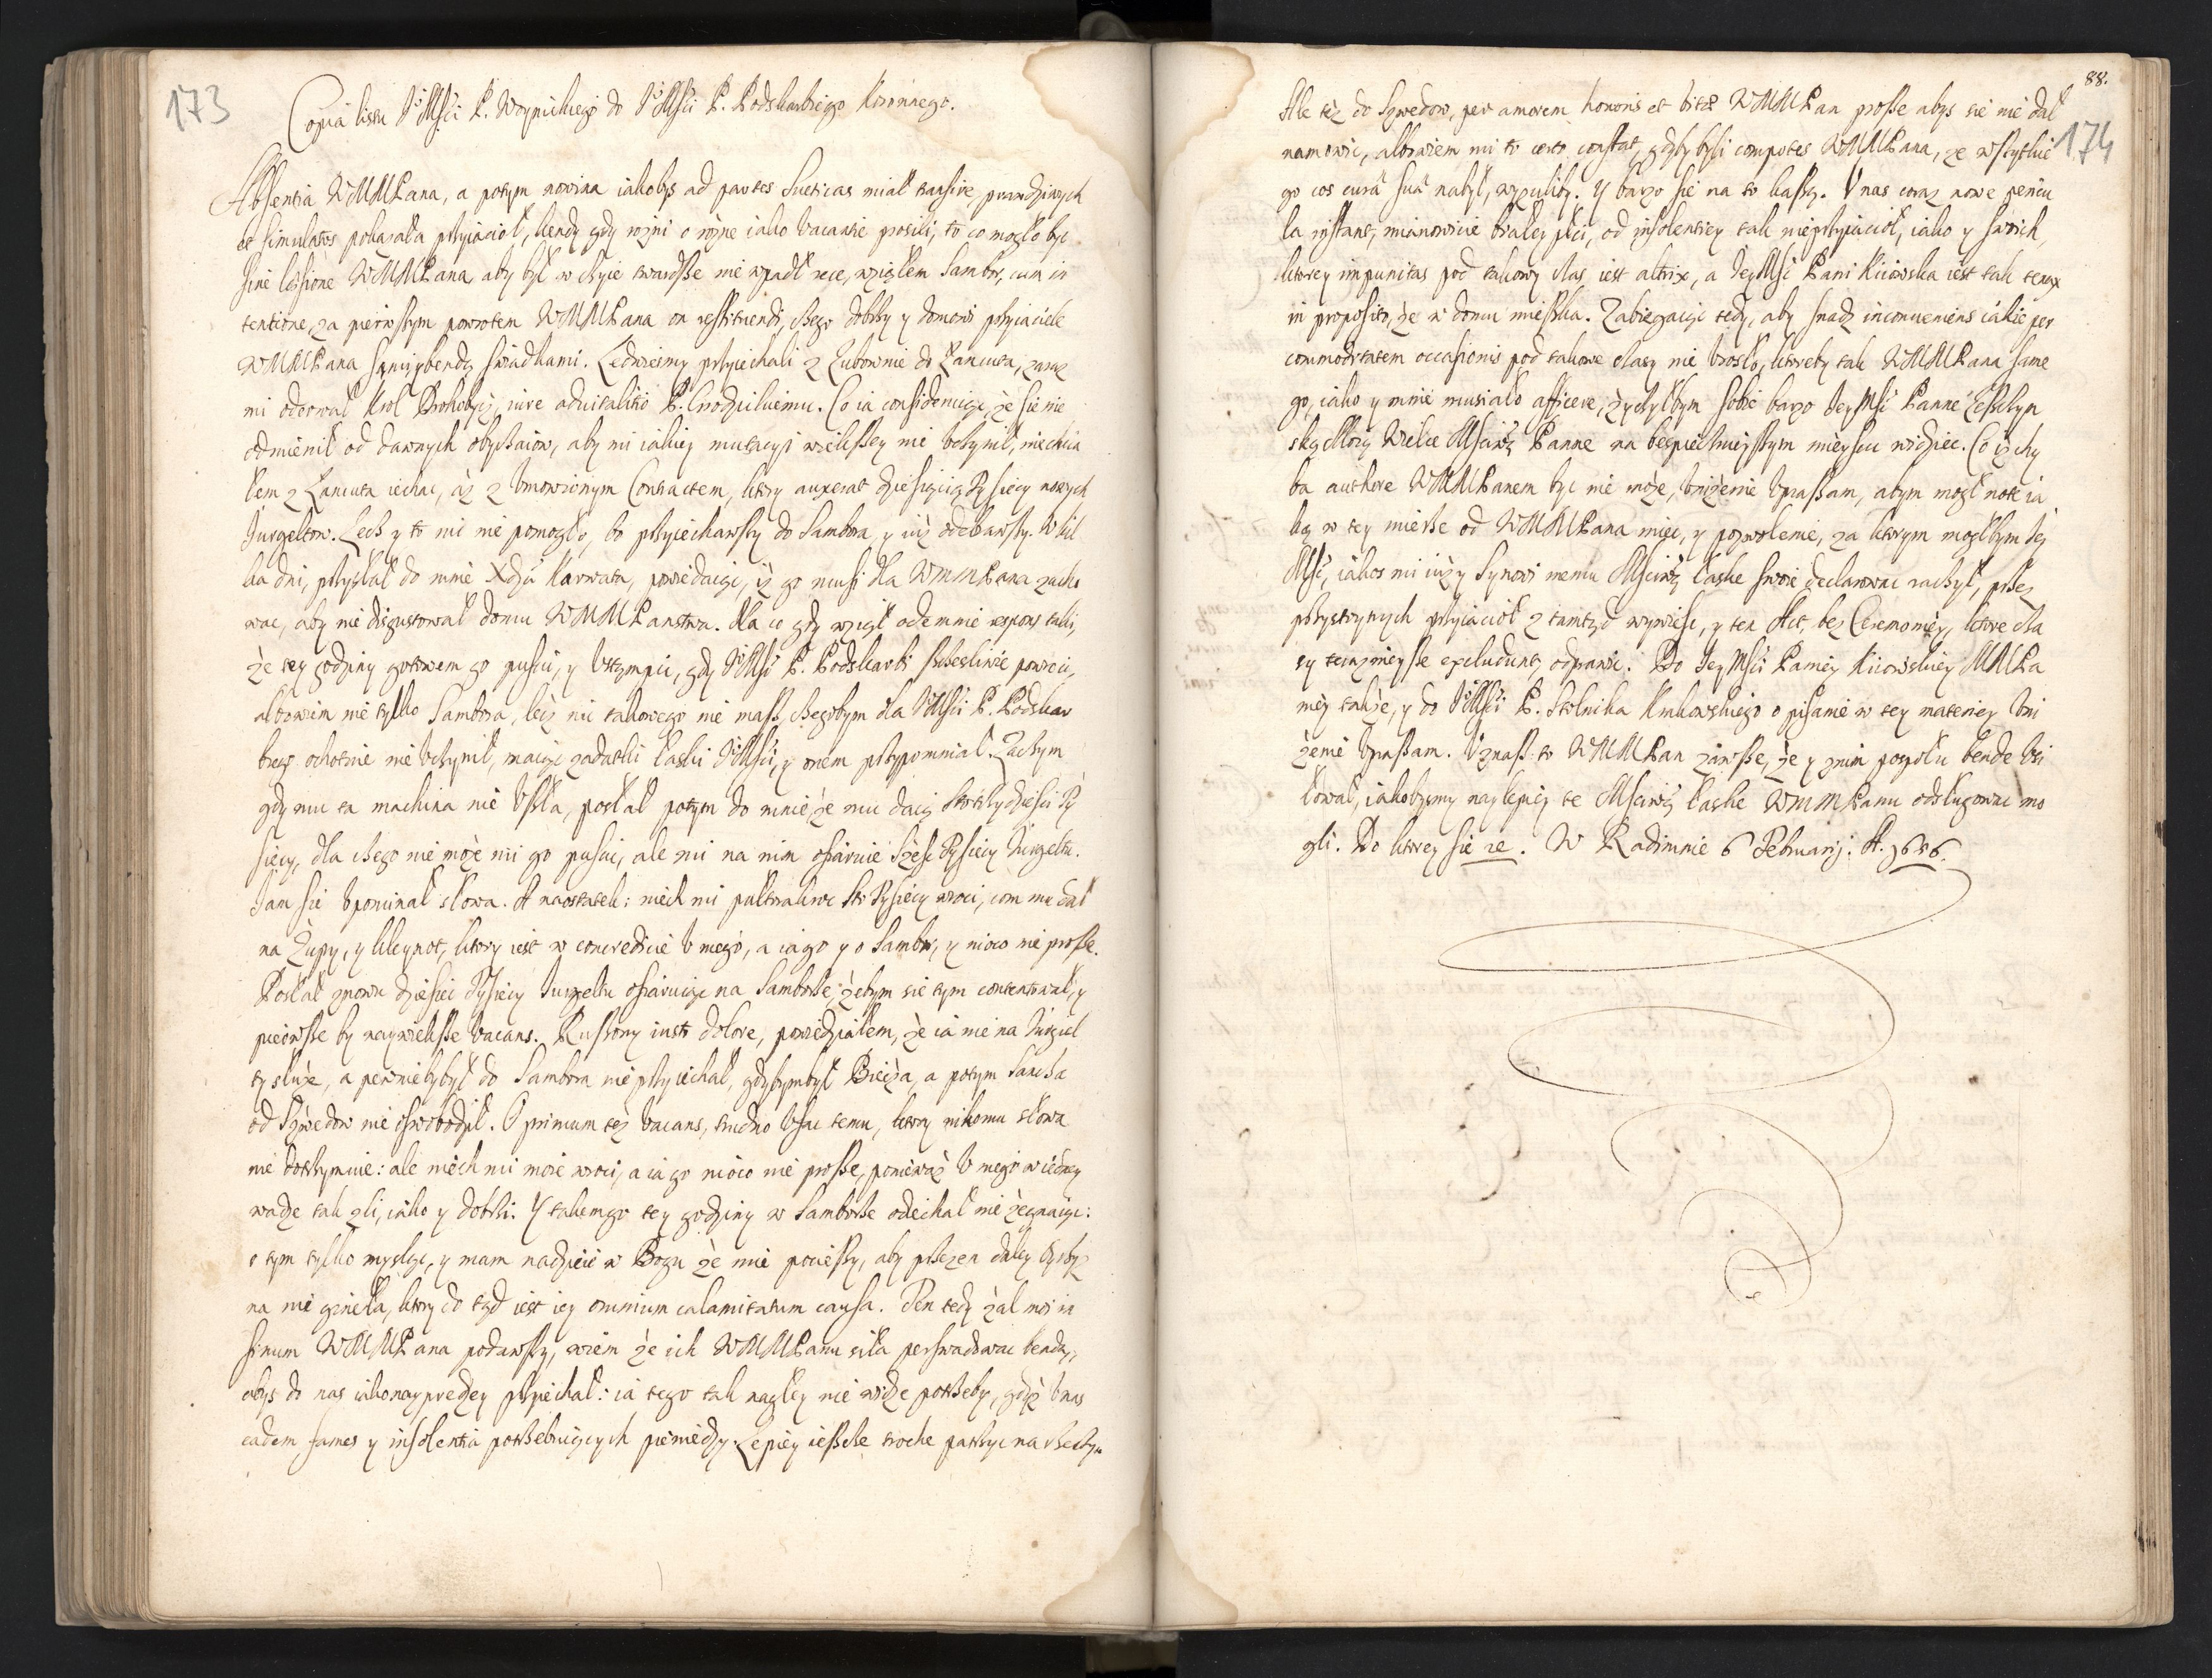 173
Copia listu JoMści P. Woynickiego do JoMści P. Podskarbiego Koronnego.
Absentia WMMPana, a potym nowina iakobyś ad partes Sueticas miał transire, prawdziwych
et simulatos pokazała przyiacioł, kiedy gdy rożni o rożne iako Vacanse prosili, to co mogło być
sine laesione WMMPana, aby był w czyie twardsze nie wpadł rece, wziąłem Sambor, cum in
tentione, za pierwszym powrotem WMMPana on restituendi, czego dobrzy y domowi przyiaciele
WMMPana są mi y bendą swiadkami. Ledwiesmy przyiechali z Lubownie do Łancuta, zaraz
mi oderwał Krol Drohobycz, iure aduitalitio P. Grodzickiemu. Co ia considerując, że sie nie
odmienił od dawnych obyczaiow, aby mi iakiey mutacyi wiekszey nie vczynił, niechcia
łem z Łancuta iechac, aż z vmowionym Contractem, ktory auxerat dziesięcią tysięcy nowych
Jurgeltow. Lecz y to mi nie pomogło, bo przyiechawszy do Sambora, y iuż odebrawszy, w kil
ka dni, przysłał do mnie Xdza Karwata, powiedaiąc, iż go musi dla WMMPana zacho
wac, aby nie disgustował domu WMMPanstwa. Na co gdy wziął odemnie respons taki,
że tey godziny gotowem go puscic, y vstąmpic, gdy JoMść P. Podskarbi szczesliwie powroci,
albowiem nie tylko Sambora, lecz nic takowego nie masz, czegobym dla JoMści P. Podskar
biego ochotnie nie vczynił, maiąc zadatki łaski JoMści, y onem przypomniał. Zaczym
gdy mu ta machina nie vszła, posłał potym do mnie, że mu daią sto trzydziesci Ty
sięcy, dla czego nie może mi go puscic, ale mi na nim ofiaruie szesc Tysięcy Jurgeltu.
Jam sie vpominał słowa. A naostatek: niech mi pułtrakroc sto Tysięcy wroci, com mu dał
na Zupy, y kleynot, ktory iest w concredicie v mego, a ia go y o Sambor, y nioco nie prosze.
Posłał znowu dziesiec Tysięcy Jurgeltu ofiaruiąc na Samborze, żebym sie tym contentował, y
pierwsze by naywieksze Vacans. Ruszony iusto dolore, powiedziałem, że ia nie na Jurgiel
ty służe, a pewnieby był do Sambora nie przyiechał, gdybym był Biecza, a potym Sącza
od Szwedow nie oswobodził. O primum też Vacans, trudno vfac temu, ktory nikomu słowa
nie dotrzymuie: ale niech mi moie wroci, a ia go nioco nie prosze, ponieważ v nego w iedney
wadze tak zli, iako y dobrzi. Y takem go tey godziny w Samborze odiechał nie żegnaiąc:
o tym tylko mysląc, y mam nadzieie w Bogu że mie pocieszy, aby przezen daley Oyczyz
na nie gineła, ktory do tąd iest iey omnium calamitatum causa. Ten tedy żal moi in
sinum WMMPana podawszy, wiem że ich WMMPanu siła perswadowac bendą,
abyś do nas iakonaypredzey przyiechał: ia tego tak nagłey nie widze potrzeby, gdyż v nas
eadem fames y insolentia potrzebuiących pieniedzy. Lepiey ieszcze troche patrzyc na rzeczy.
88.
174
Ale też do Szwedow, per amorem honoris et vitae WMMPan prosze abyś sie nie dał
namowic, albowiem mi to certo constat, gdyby byli compotes WMMPana, że wszytkie
go coś curâ suâ nabył, wyzuliby. Y barzo sie na to kaszą. V nas coraz nowe pericu
la instant, mianowicie białey płci, od insolentiey tak nieprzyiacioł, iako y swoich,
ktorey impunitas pod takowy czas, iest altrix, a JeyMść Pani Kiiowska iest tak tenax
in proposito, że w domu mieszka. Zabiegaiąc tedy, aby snadz inconueniens iakie per
commoditatem occasionis pod takowe czasy nie vrosło, ktoreby tak WMMPana same
go, iako y mnie musiało afficere, życzyłbym sobie barzo JeyMść Panne
ską Moią Wielce Mściwą Panne na bespiecznieyszym mieyscu widziec. Co iż chy
ba authore WMMPanem byc nie może, vniżenie vpraszam, abym mogł note ia
ką w tey mierze od WMMPana miec, y pozwolenie, za ktorym mogłbym Jey
Mść, iakoś mi iuż y Synowi memu Mściwą łaske swoie declarowac raczył, przez
przystoynych przyiacioł z tamtąd wywiesc, y ten Act, bez Ceremoniey, ktore cza
sy teraznieysze excludunt, odprawic. Do JeyMści Paniey Kiiowskiey MMPa
niey także, y do JoMści P. Stolnika Krakowskiego o pisanie w tey materiey vni
żenie vpraszam. Vznasz to WMMPan zawsze, że y z nim pospołu bende vsi
łował, iakobysmy naylepiey te Mściwą łaske WMMPanu odsługowac mo
gli. Do ktorey sie ze. W Radimnie 6 Februarij. A. 1656.